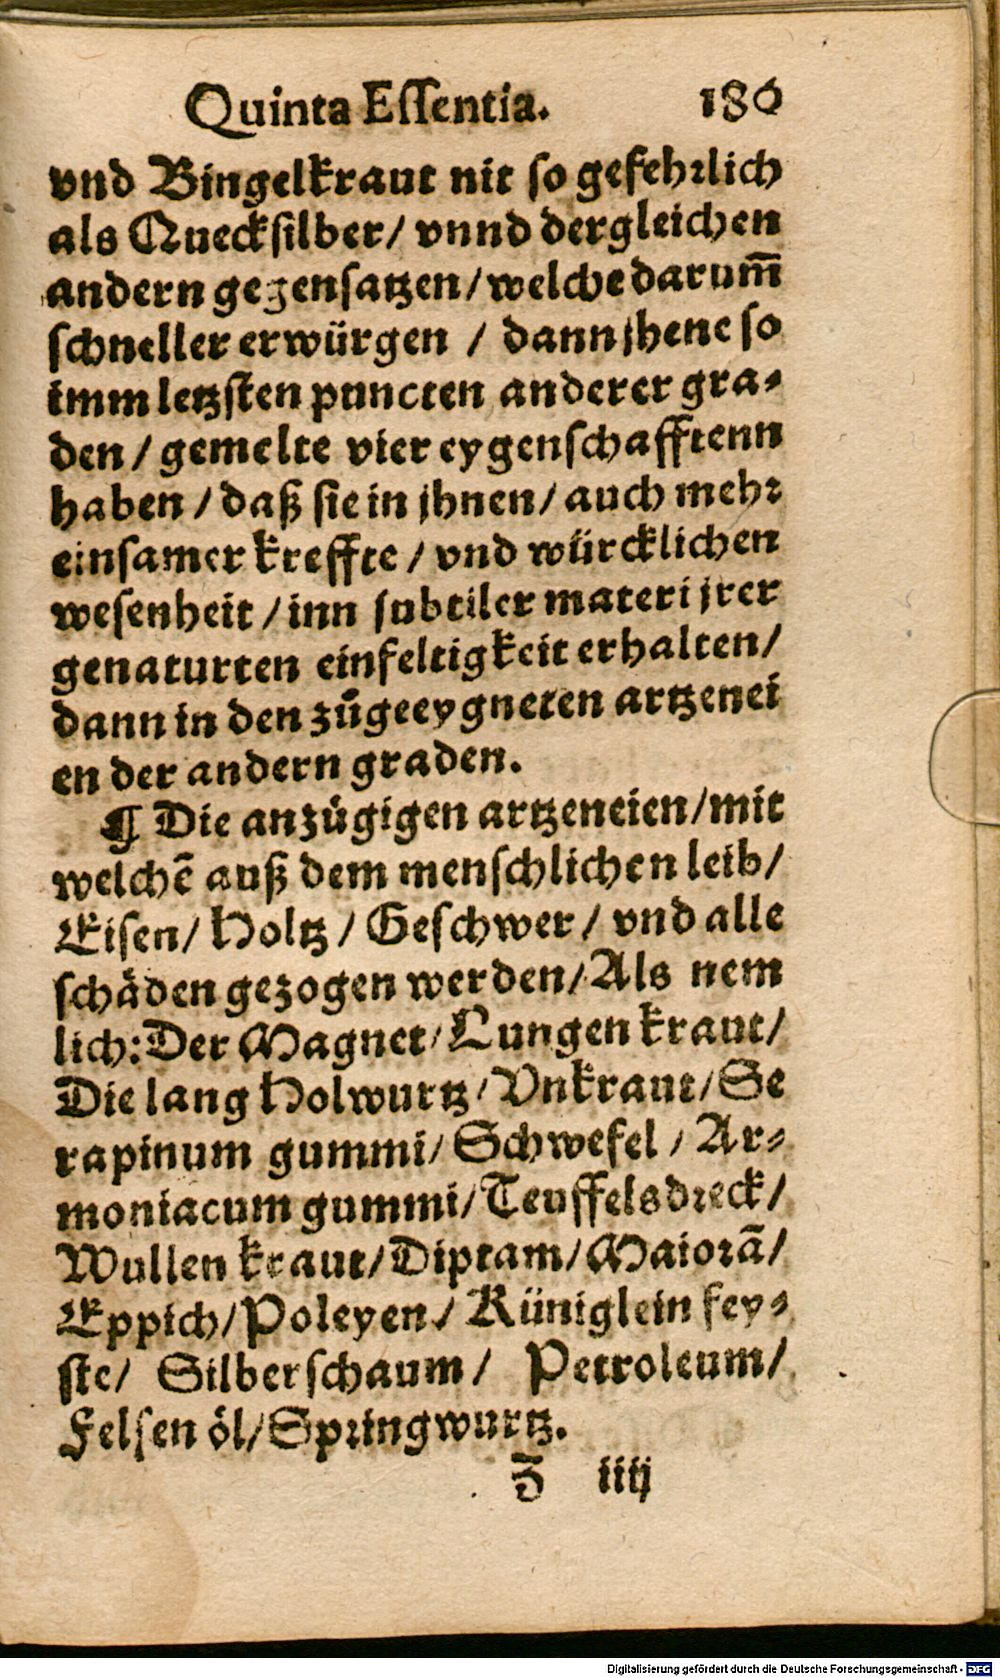 Quinta Eſſentia. 186
vnd Bingelkraut nit ſo gefehꝛlich
als Queckſilber/ vnnd dergleichen
andern gegenſatzen/welche darum̃
ſchneller erwürgen / dann jhene ſo
imm letzſten puncten anderer gra⸗
den/ gemelte vier eygenſchafftenn
haben / daß ſie in jhnen/ auch mehꝛ
einſamer kreffte / vnd würcklichen
weſenheit / inn ſubtiler materi jrer
genaturten einfeltigkeit erhalten/
dann in den zůgeeygneten artzenei
en der andern graden.
¶ Die anzügigen artzeneien/mit
welchẽ auß dem menſchlichen leib/
Eiſen/ Holtz / Geſchwer / vnd alle
ſchäden gezogen werden/Als nem
lich:Der Magnet/Lungenkraut/
Die lang Holwurtz/Vnkraut/Se
rapinum gummi/ Schwefel / Ar⸗
moniacum gummi/Teuffelsdꝛeck/
Wullen kraut/Diptam/Maioꝛã/
Eppich/Poleyen/ Küniglein fey⸗
ſte/ Silberſchaum/ Petroleum/
Felſen öl/Spꝛingwurtz.
Z iiij
Digitalisierung gefördert durch die Deutsche Forschungsgemeinschaft - DFG